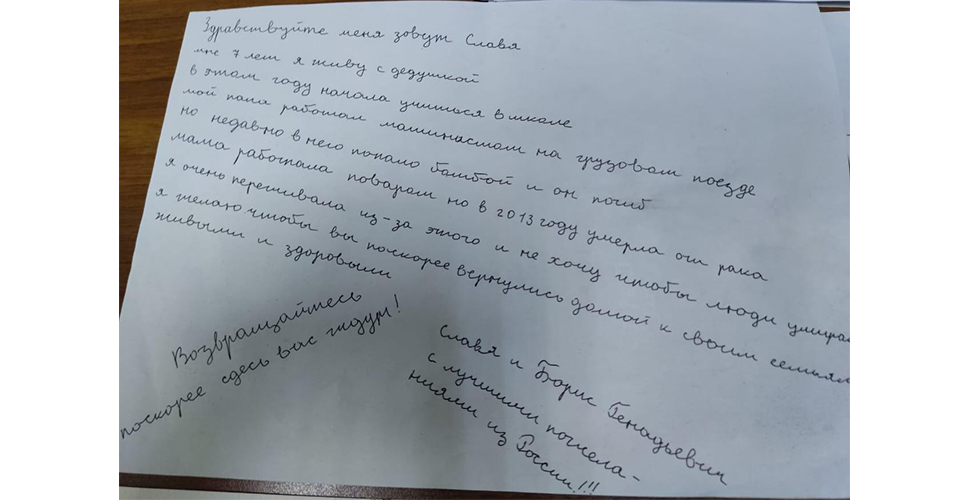 Здравствуйте меня зовут Славя
мне 7 лет я живу с дедушкой
в этом году начала учиться в школе
мой папа работал машинастом на грузовом поезде
но недавно в него попало бомбой и он погиб
мама работала поваром но в 2013 году умерла от рака
я очень переживала из-за этого и не хочу чтобы люди умирал
я желаю чтобы вы поскорее вернулись домой к своим семьям
живыми и здоровыми
Возвращайтесь
поскорее сдесь вас ждут!
Славя и Борис Генадьевич
с лучшими пожела-
ниями из России!!!